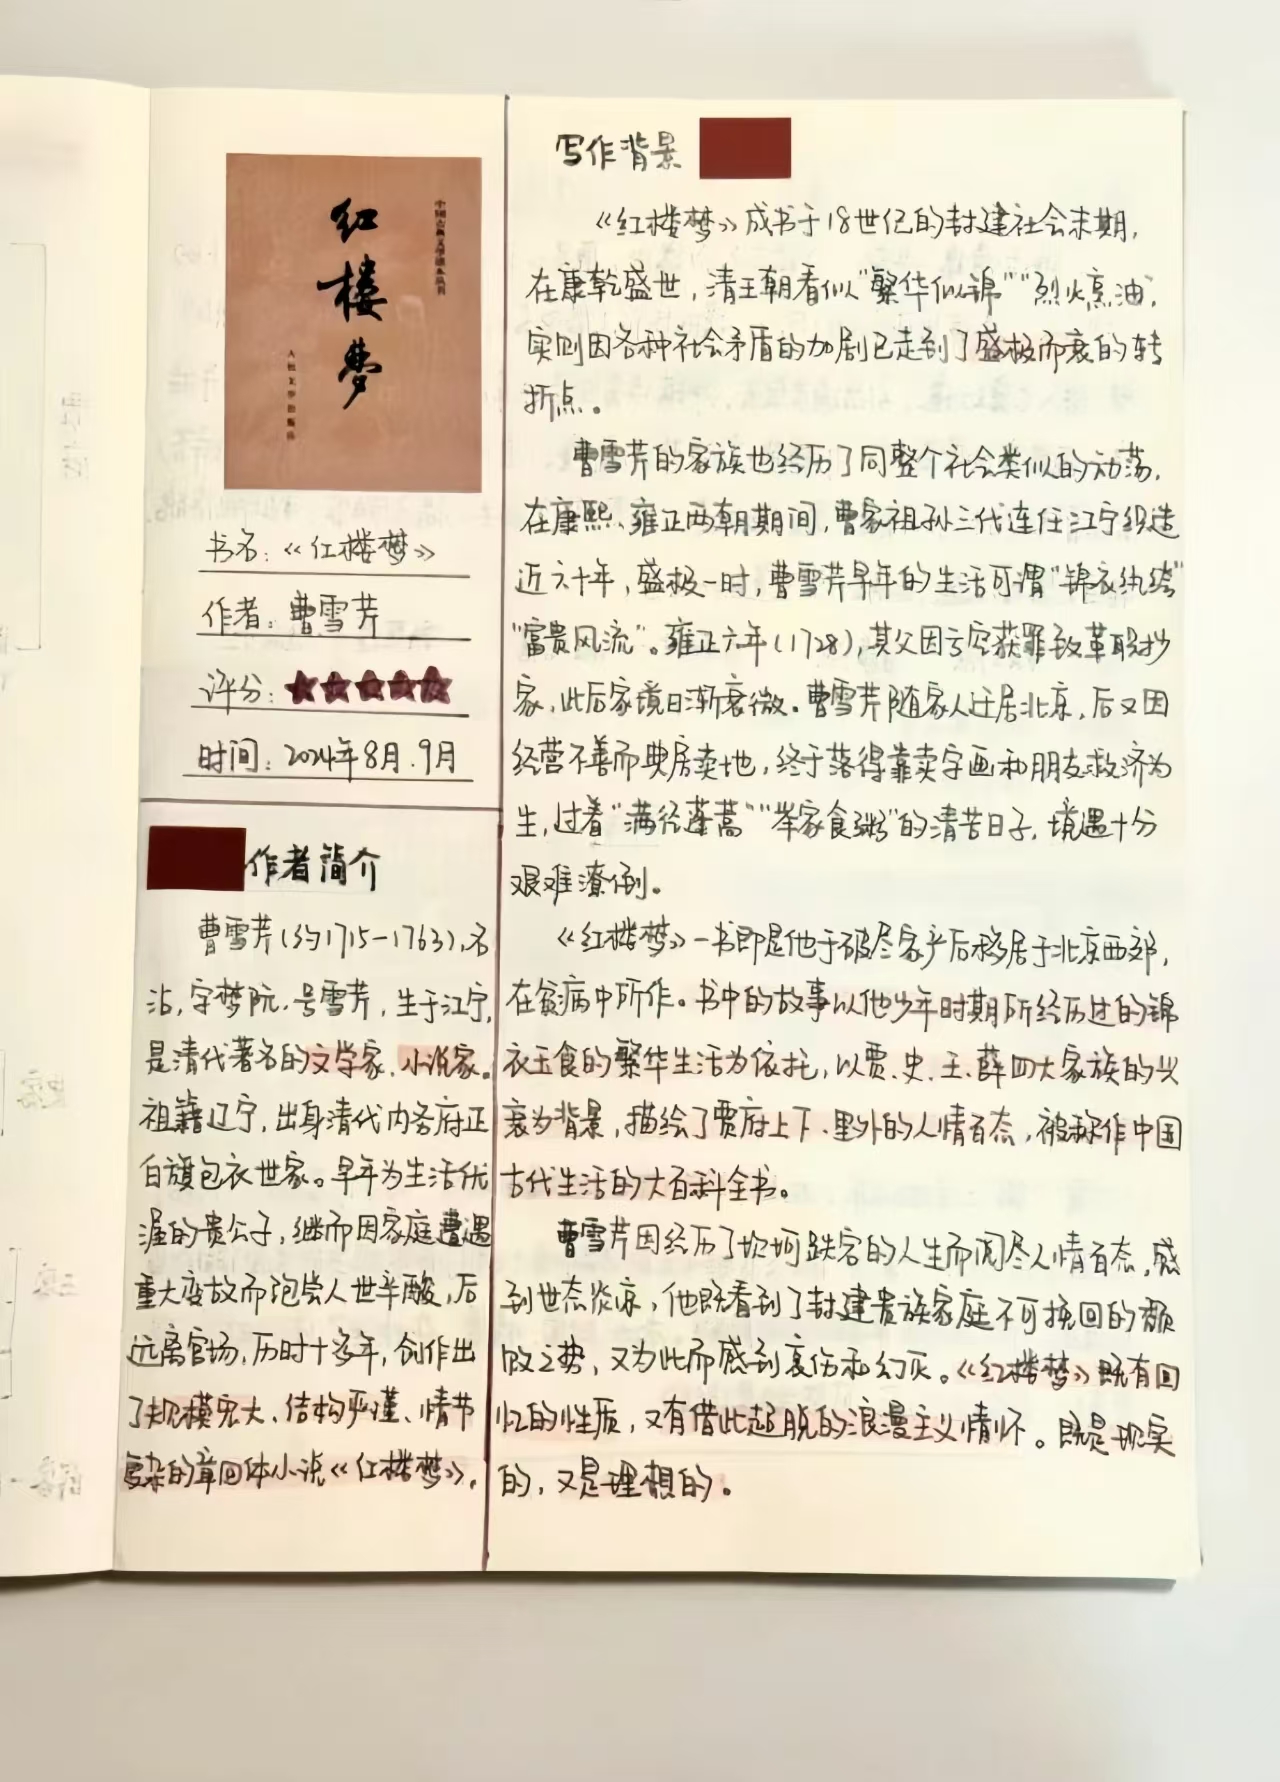 红楼梦
中国古典文学读本丛书
人民文学出版社
书名：《红楼梦》
作者：曹雪芹
评分：★★★★★
时间：2024年8月.9月
作者简介
曹雪芹(约1715-1763),名
沾,字梦阮,号雪芹,生于江宁,
是清代著名的文学家、小说家。
祖籍辽宁,出身清代内务府正
白旗包衣世家。早年为生活优
渥的贵公子,继而因家庭遭遇
重大变故而饱尝人世辛酸,后
远离官场,历时十多年,创作出
了规模宏大、结构严谨、情节
复杂的章回体小说《红楼梦》。
写作背景
《红楼梦》成书于18世纪的封建社会末期,
在康乾盛世,清王朝看似“繁华似锦”“烈火烹油”,
实则因各种社会矛盾的加剧已走到了盛极而衰的转
折点。
曹雪芹的家族也经历了同整个社会类似的动荡,
在康熙、雍正两朝期间,曹家祖孙三代连任江宁织造
近六十年,盛极一时,曹雪芹早年的生活可谓“锦衣纨绔”
“富贵风流”。雍正六年(1728),其父因亏空获罪致革职抄
家,此后家境日渐衰微。曹雪芹随家人迁居北京,后又因
经营不善而典房卖地,终于落得靠卖字画和朋友救济为
生,过着“满径蓬蒿”“举家食粥”的清苦日子,境遇十分
艰难潦倒。
《红楼梦》一书即是他于破尽家产后移居于北京西郊,
在贫病中所作。书中的故事以他少年时期所经历过的锦
衣玉食的繁华生活为依托,以贾、史、王、薛四大家族的兴
衰为背景,描绘了贾府上下、里外的人情百态,被称作中国
古代生活的大百科全书。
曹雪芹因经历了坎坷跌宕的人生而阅尽人情百态,感
到世态炎凉,他既看到了封建贵族家庭不可挽回的颓
败之势,又为此而感到哀伤和幻灭。《红楼梦》既有回
忆的性质,又有借此超脱的浪漫主义情怀。既是现实
的,又是理想的。